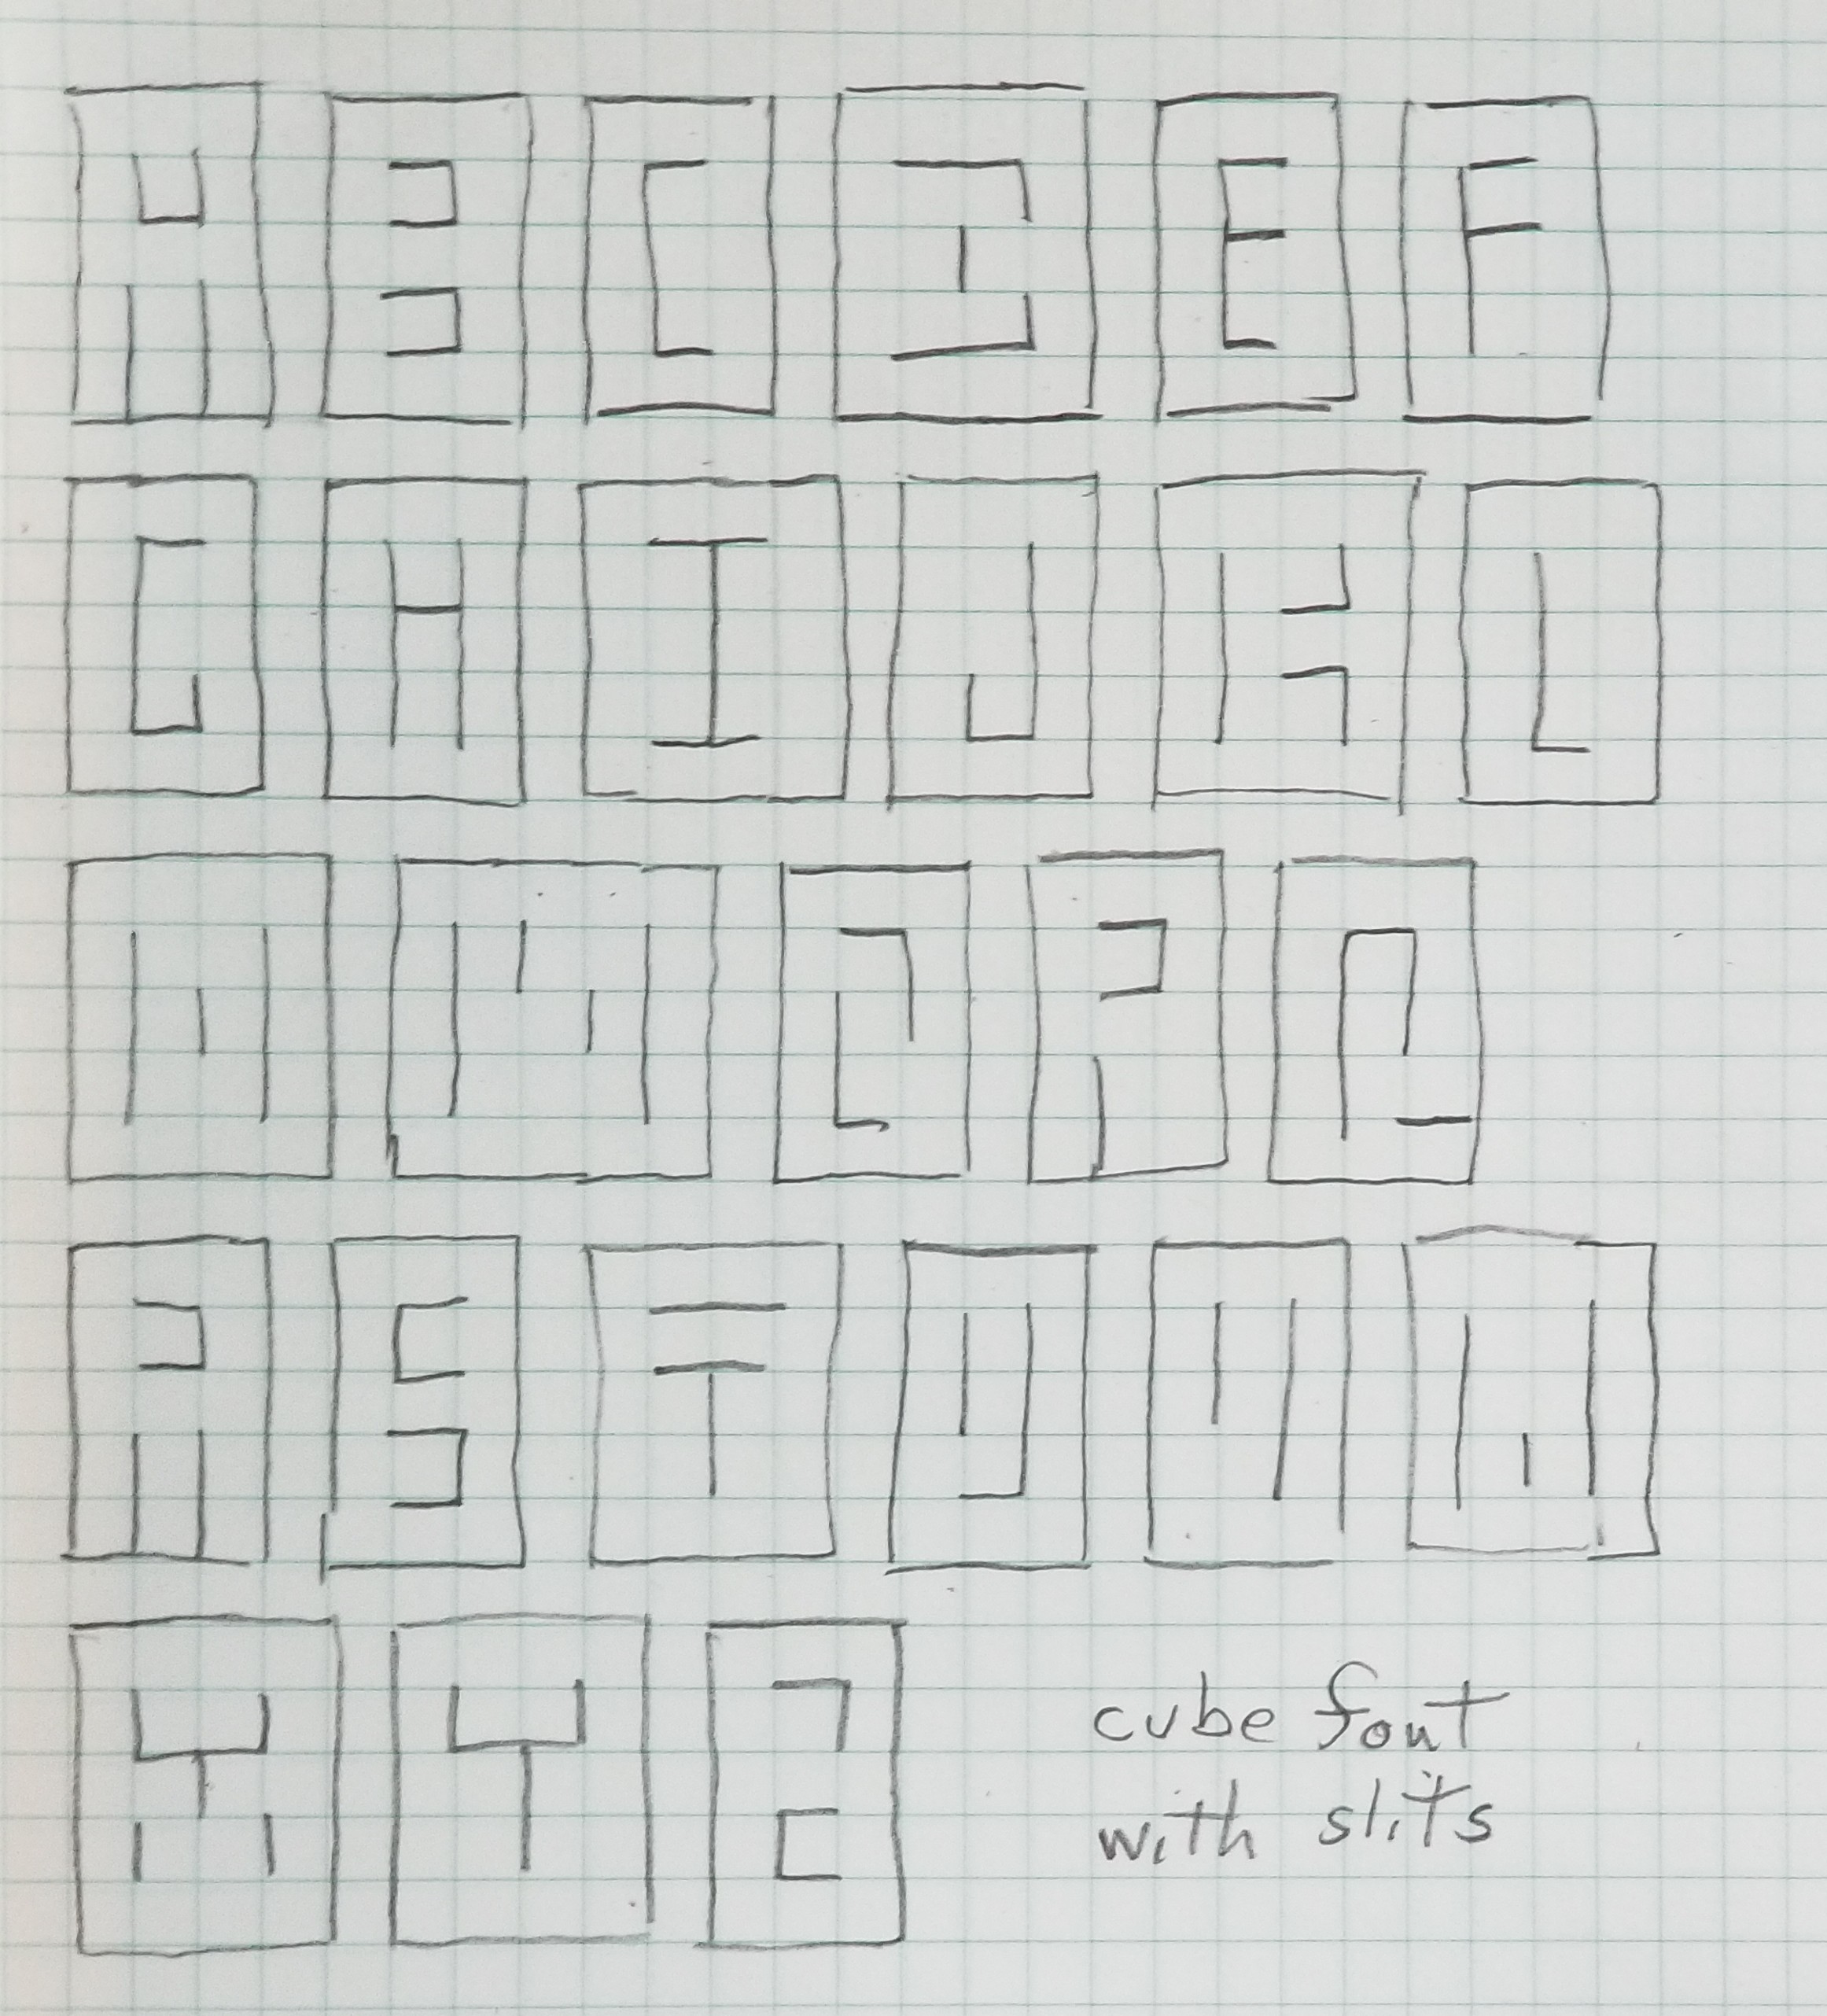 A B C D E F
G H I J K L
M N O P Q
R S T U V W
X Y Z
cube font
with slits